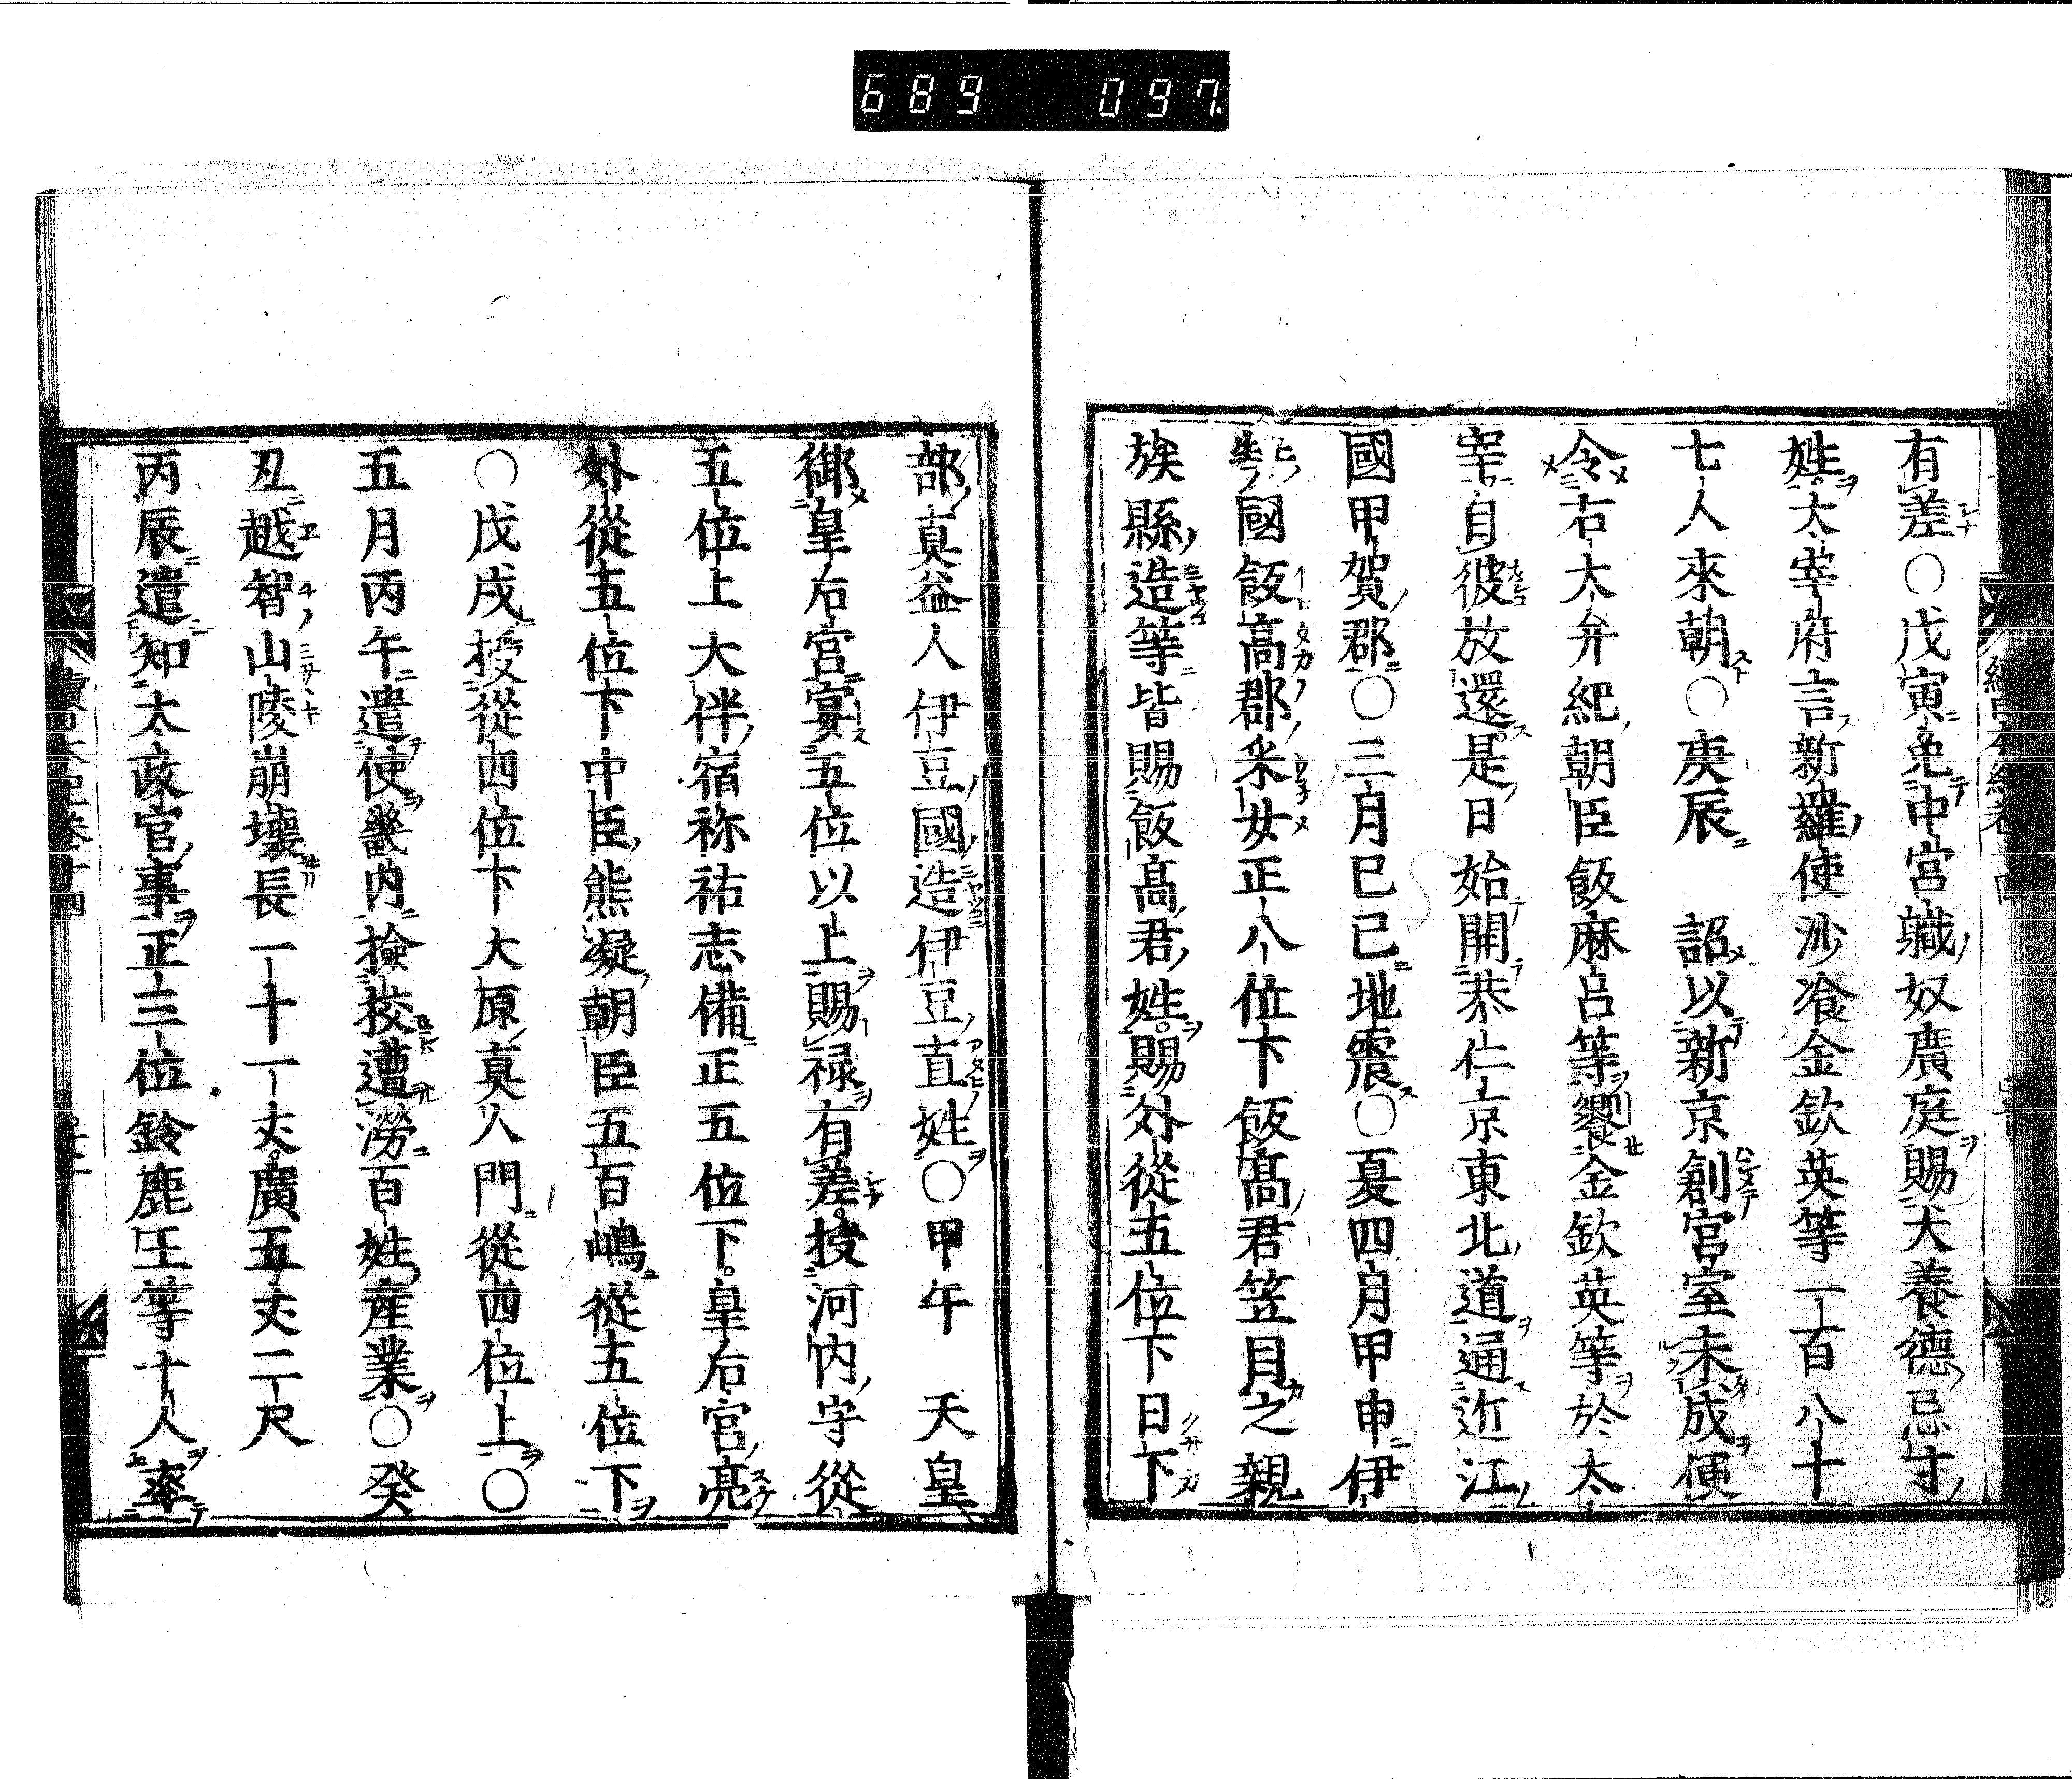 689 097
有差○戊寅免中宮職奴廣庭賜大養德忌寸
姓太宰府言新羅使沙飡金欽英等一百八十
七人來朝○庚辰 詔以新京創宮室未成便
令右大弁紀朝臣飯麻呂等饗金欽英等於太
宰自彼放還是日始開恭仁京東北道通近江
國甲賀郡○三月己巳地震○夏四月甲申伊
勢國飯高郡采女正八位下飯髙君笠目之親
族縣造等皆賜飯髙君姓賜外從五位下日下
部直益人伊豆國造伊豆直姓○甲午 天皇
御皇后宮宴五位以上賜禄有差授河内守從
五位上大伴宿祢祜志備正五位下皇后宮亮
外從五位下中臣熊凝朝臣五百嶋從五位下
○戊戌授從四位下大原真人門從四位上○
五月丙午遣使畿内撿挍遭澇百姓産業○癸
丑越智山陵崩壞長一十一丈廣五丈二尺
丙辰遣知太政官事正三位鈴鹿王等十人率